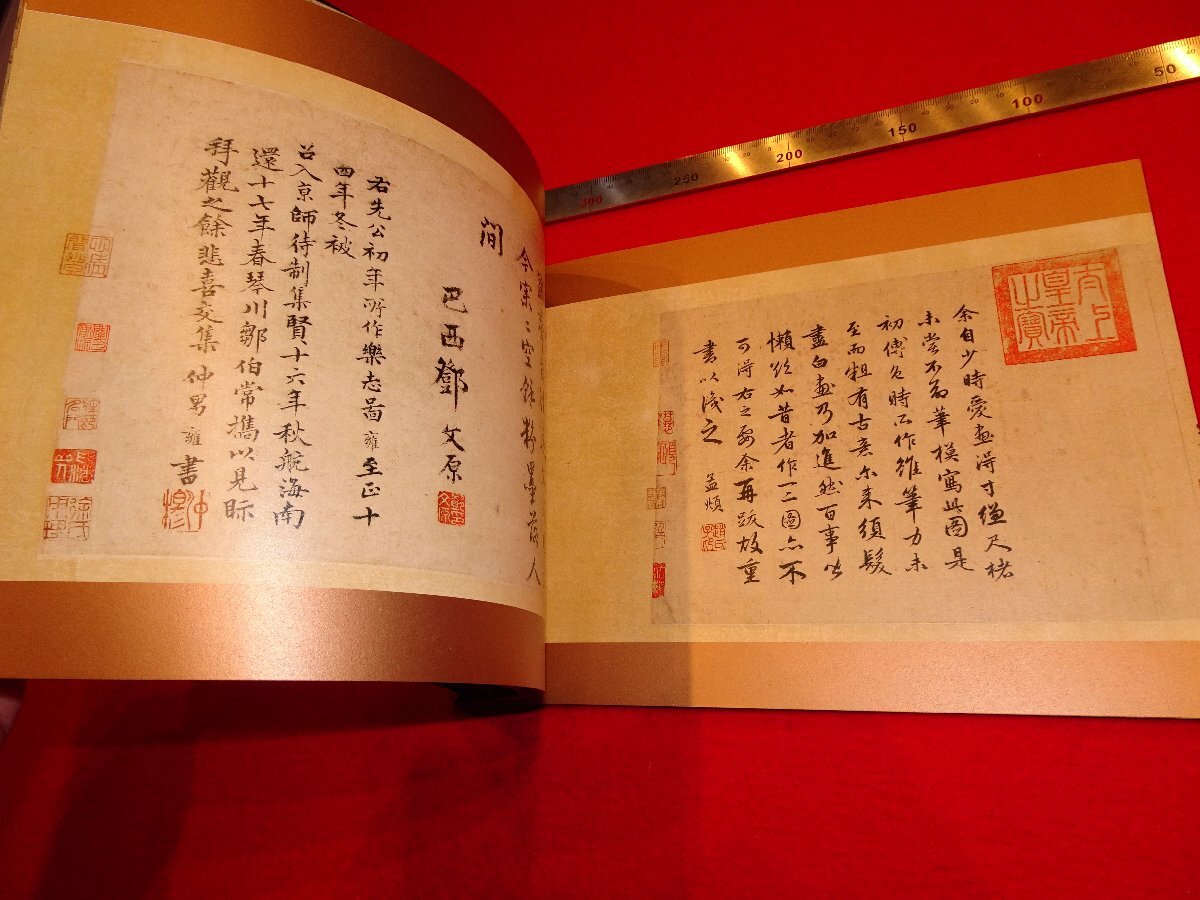 太上皇帝之寶
余自少時愛畫得寸縑尺楮
未嘗不命筆模寫此圖是
初傅色時所作雖筆力未
至而粗有古意尔来須髮
盡白畫乃加進然百事皆
懶欲如昔者作一二圖亦不
可得右之要余再跋故重
書以識之 孟頫
今寥寥空餘粉墨落人
間
巴西鄧文原
右先公初年所作樂志啚雍至正十
四年冬被
召入京師待制集賢十六年秋航海南
還十七年春琴川鄒伯常攜以見眎
拜觀之餘悲喜交集仲男雍書
50
100
150
200
250
300